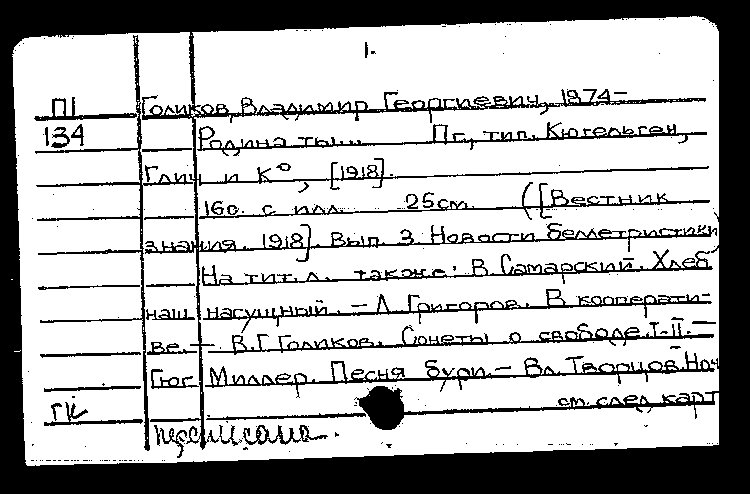 1.
П1 Голиков, Владимир Георгиевич, 1874-
134 Родина ты... Пг., тип. Кюгельген,
Глич и К°, [1918].
16с. с илл. 25см. ([Вестник
знания. 1918]. Вып. 3. Новости беллетристики)
На тит. л. также: В. Самарский. Хлеб
наш насущный. — Л. Григоров. В кооперати-
ве. — В.Г. Голиков. Сонеты о свободе. I-II. —
Гюг Миллер. Песня бури. — Вл. Творцов. Ноч
ГК см. след. карт